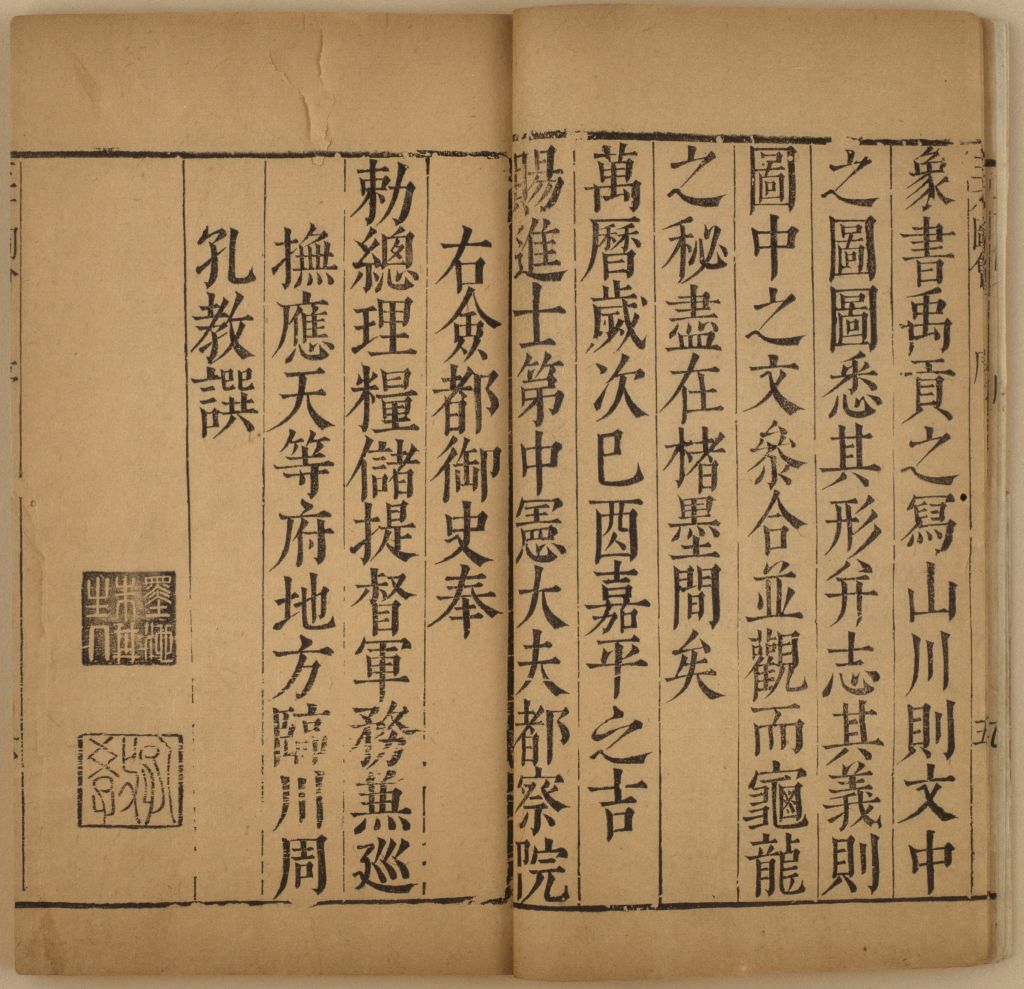 象書禹貢之冩山川則文中
之圖圖悉其形弁志其義則
圖中之文叅合並觀而龜龍
之秘盡在楮墨間矣
萬曆歲次巳酉嘉平之吉
賜進士第中憲大夫都察院
右僉都御史奉
勑總理糧儲提督軍務兼巡
撫應天等府地方臨川周
孔教譔